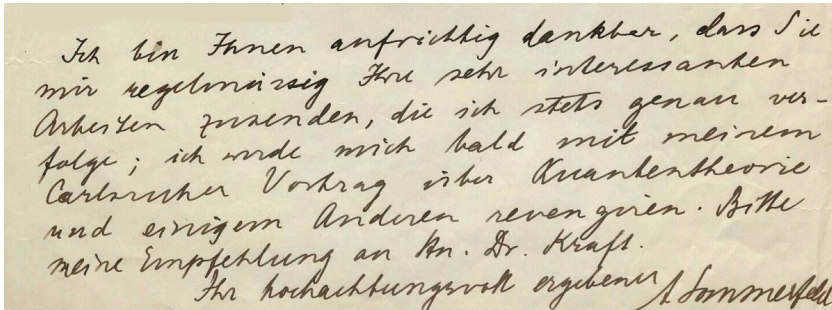 Ich bin Ihnen aufrichtig dankbar, dass Sie
mir regelmässig Ihre sehr interessanten
Arbeiten zusenden, die ich stets genau ver-
folge; ich werde mich bald mit meinem
Carlsruher Vortrag über Quantentheorie
und einigem Anderen revengiren. Bitte
meine Empfehlung an Hn. Dr. Kraft.
Ihr hochachtungsvoll ergebener A Sommerfeld